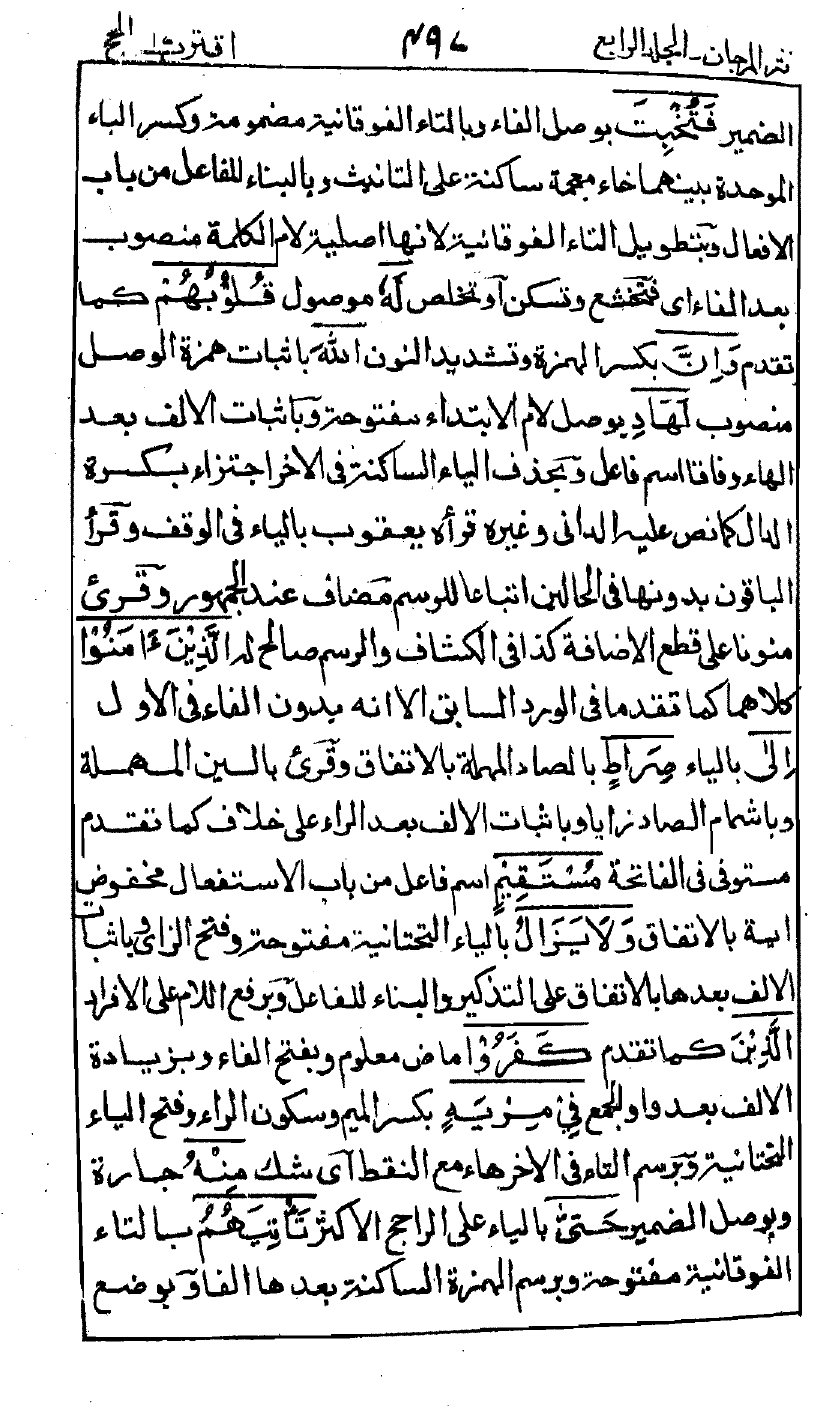 نثر المرجان۔ المجلد الرابع ۴۹۷ اقترب۱۷ الحج
الضمير فَتُخْبِتَ بوصل الفاء وبالتاء الفوقانية مضمومة وكسر الباء
الموحدة بينهما خاء معجمة ساكنة على التانيث وبالبناء للفاعل من باب
الافعال وبتطويل التاء الفوقانية لانها اصلية لام الكلمة منصوب
بعد الفاء اى فتخشع وتسكن او تخلص لَهٗ موصول قُلُوْبُهُمْ كما
تقدم وَاِنَّ بكسر الهمزة وتشديد النون اللّٰهَ باثبات همزة الوصل
منصوب لَهَادِ بوصل لام الابتداء مفتوحة وباثبات الالف بعد
الهاء وفاقا اسم فاعل وبحذف الياء الساكنة فى الاخر اجتزاء بكسرة
الدال كما نص عليه الدانى وغيره قرأه يعقوب بالياء فى الوقف وقرأ
الباقون بدونها فى الحالين اتباعا للرسم مضاف عند الجمهور وقرئ
منونا على قطع الاضافة كذا فى الكشاف والرسم صالح له الَّذِيْنَ ءَامَنُوْا
كلاهما كما تقدما فى الورد السابق الا انه بدون الفاء فى الاول
اِلٰى بالياء صِرَاطٍ بالصاد المهملة بالاتفاق وقرئ بالسين المهملة
وباشمام الصاد زايا وباثبات الالف بعد الراء على خلاف كما تقدم
مستوفى فى الفاتحة مُسْتَقِيْمٍ اسم فاعل من باب الاستفعال مخفوض
اية بالاتفاق وَلَا يَزَالُ بالياء التحتانية مفتوحة وفتح الزاى وباثبات
الالف بعدها بالاتفاق على التذكير والبناء للفاعل وبرفع اللام على الافراد
الَّذِيْنَ كما تقدم كَفَرُوْا ماض معلوم وبفتح الفاء وبزيادة
الالف بعد واو الجمع فِيْ مِرْيَةٍ بكسر الميم وسكون الراء وفتح الياء
التحتانية وبرسم التاء فى الاخر هاء مع النقط اى شك مِنْهُ جارة
وبوصل الضمير حَتّٰى بالياء على الراجح الاكثر تَأْتِيَهُمُ بالتاء
الفوقانية مفتوحة وبرسم الهمزة الساكنة بعدها الفا وبوضع